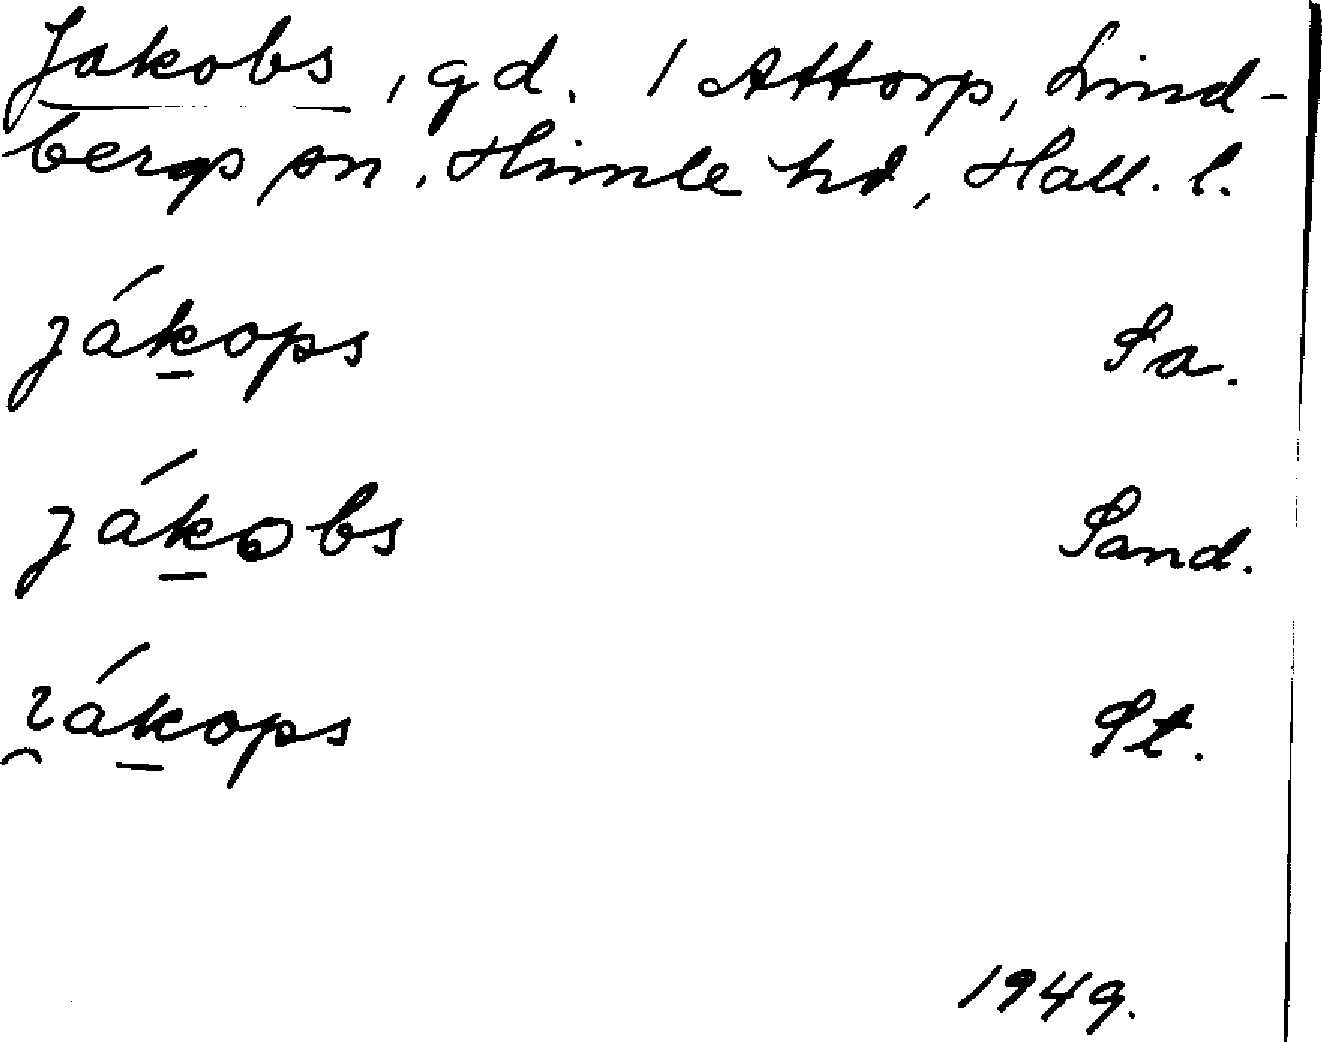 Jakobs, gd. 1 Attorp, Lind-
bergs sn, Himle hd, Hall. l.
jákops Sa.
jákobs Sand.
ɿákops St.
1949.